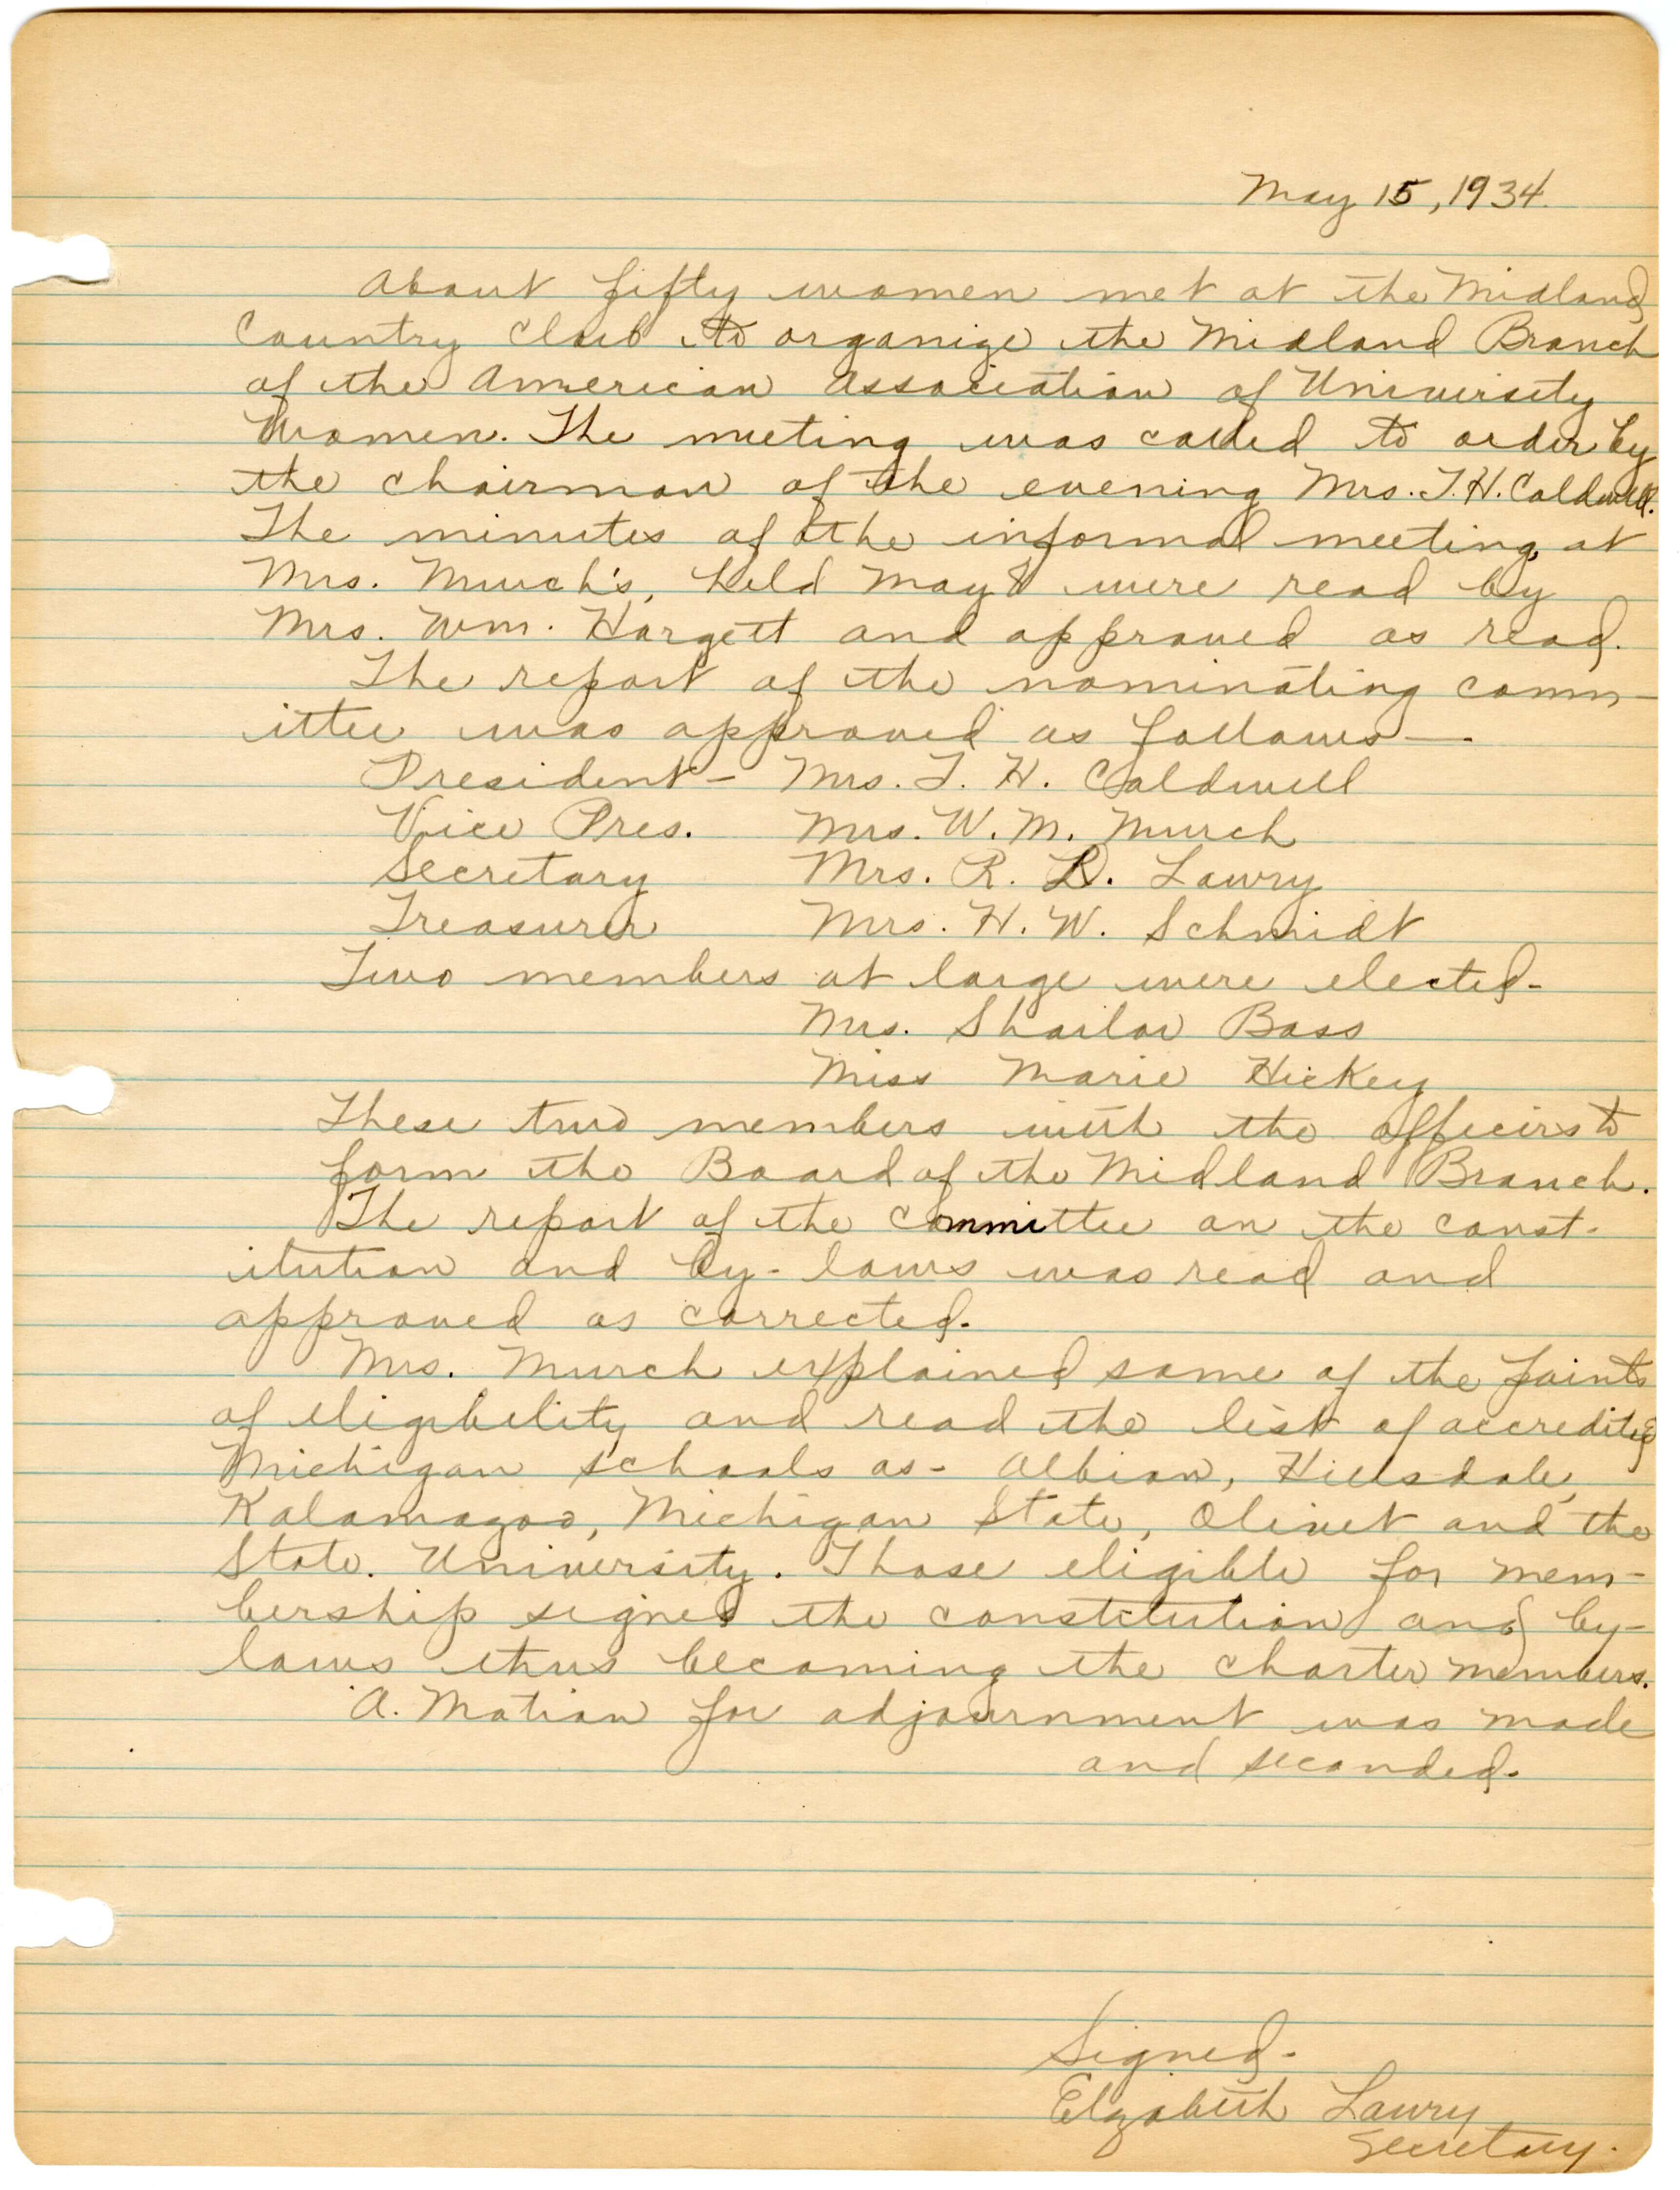 May 15, 1934.
About fifty women met at the Midland
Country Club to organize the Midland Branch
of the American Association of University
Women. The meeting was called to order by
the chairman of the evening Mrs. T. H. Caldwell.
The minutes of the informal meeting at
Mrs. Murch's, held May 8 were read by
Mrs. Wm. Hargett and approved as read.
The report of the nominating comm-
ittee was approved as follows—.
President- Mrs. T. H. Caldwell
Vice Pres. Mrs. W. M. Murch
Secretary Mrs. R. D. Lowry
Treasurer Mrs. H. W. Schmidt
Two members at large were elected-
Mrs. Shailor Bass
Miss Marie Hickey
These two members with the officers to
form the Board of the Midland Branch.
The report of the committee on the const-
itution and by-laws was read and
approved as corrected.
Mrs. Murch explained some of the points
of eligibility and read the list of accredited
Michigan schools as- Albion, Hillsdale,
Kalamazoo, Michigan State, Olivet and the
State. University. Those eligible for mem-
bership signed the constitution and by-
laws thus becoming the charter members.
A. Motion for adjournment was made
and seconded.
Signed-
Elzabeth Lowry
Secretary.